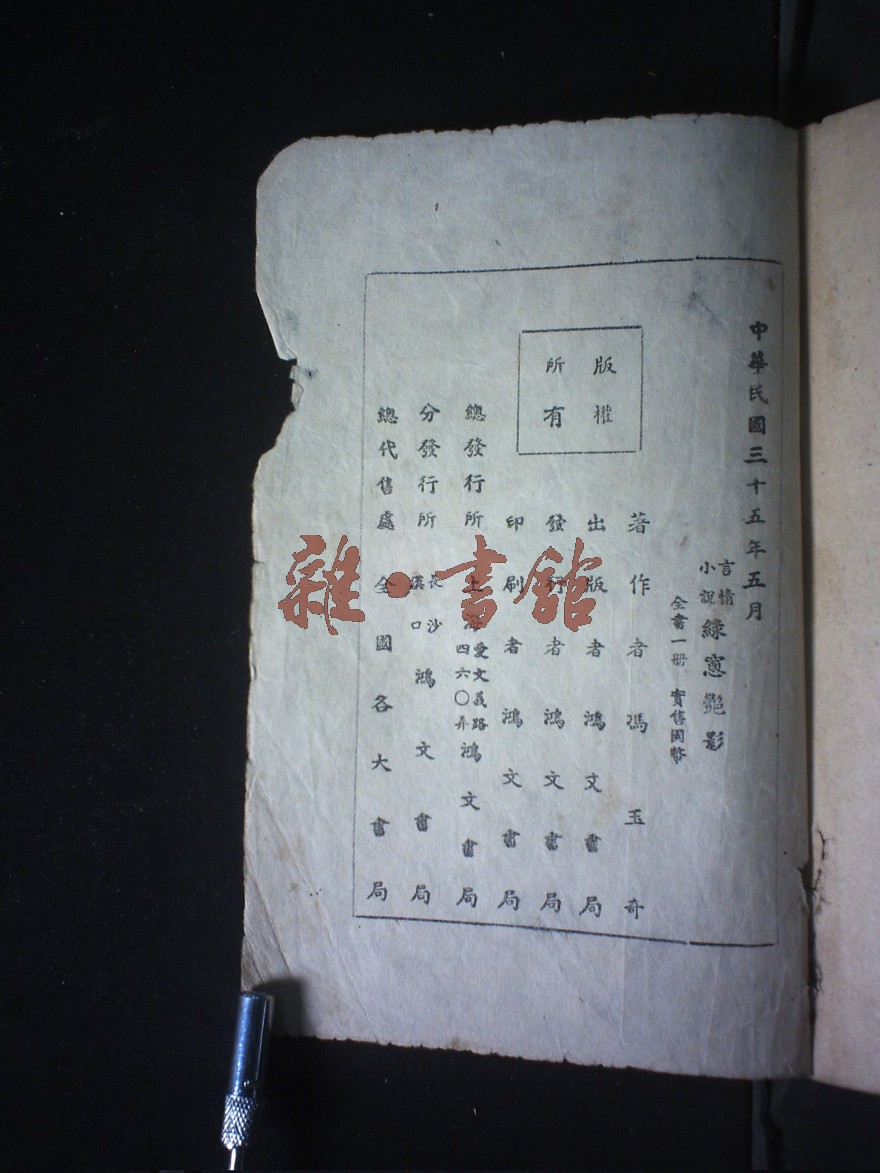 中華民國三十五年五月
言情小說 綠窻艷影
全書一册 實售國幣
版權所有
著作者 馮玉奇
出版者 鴻文書局
發行者 鴻文書局
印刷者 鴻文書局
總發行所 上海愛文義路四六〇弄 鴻文書局
分發行所 長沙漢口 鴻文書局
總代售處 全國各大書局
雜·書館